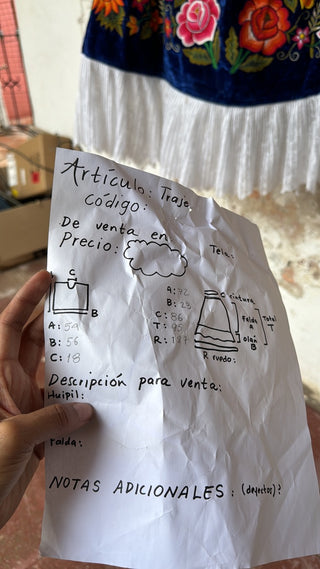 Artículo: Traje
código:
De venta en
Precio:
Tela:
C
B
A: 59
B: 56
C: 18
A: 72
B: 23
C: 86
T: 95
R: 187
C cintura
Falda
A
olan
B
Total
T
R ruedo:
Descripción para venta:
Huipil:
Falda:
NOTAS ADICIONALES: (defectos)?